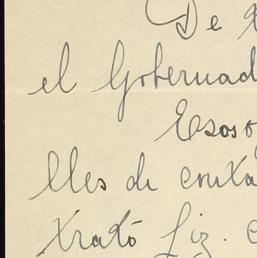 De
el Gobernad
Esos
lles de conta
trató Liz.